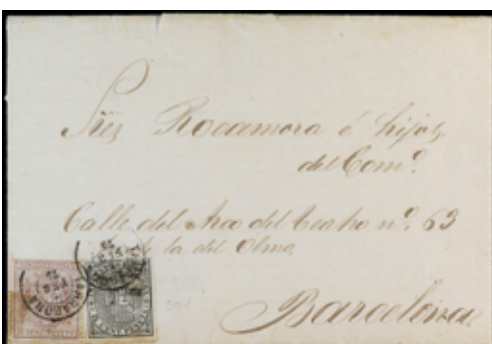 Sres Rocamora é hijos
del Com.º
Calle del Arco del Teatro nº 63
de la del Olmo
Barcelona
TARRAGONA